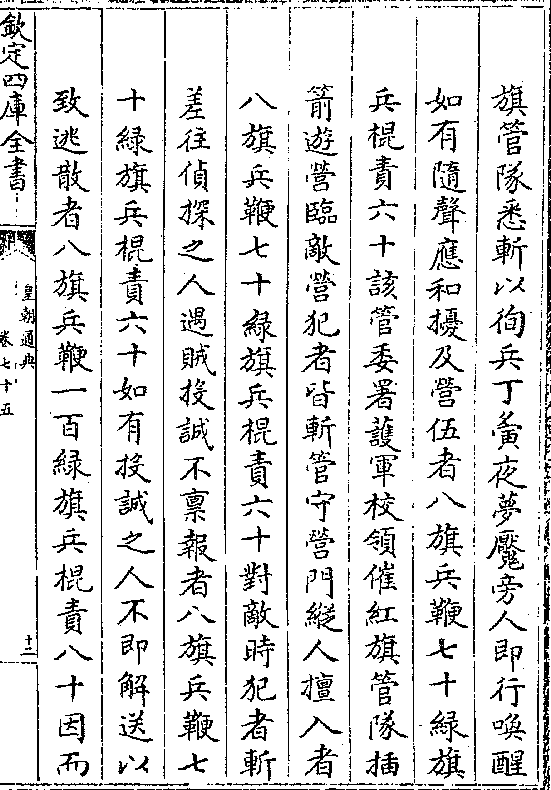 旗管隊悉斬以徇兵丁夤夜夢魘旁人即行喚醒
如有隨聲應和擾及營伍者八旗兵鞭七十綠旗
兵棍責六十該管委署護軍校領催紅旗管隊插
箭遊營臨敵營犯者皆斬管守營門縱人擅入者
八旗兵鞭七十綠旗兵棍責六十對敵時犯者斬
差往偵探之人遇賊投誠不稟報者八旗兵鞭七
十綠旗兵棍責六十如有投誠之人不即解送以
致逃散者八旗兵鞭一百綠旗兵棍責八十因而
欽定四庫全書
皇朝通典
卷七十五
十二